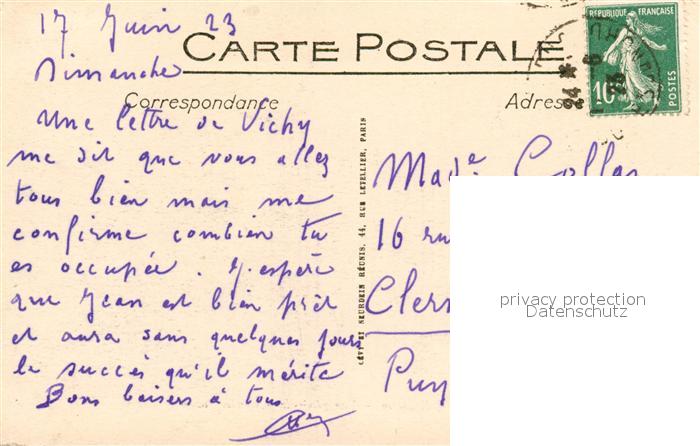 17 Juin 23
CARTE POSTALE
Dimanche
Correspondance
Adresse
Une lettre de Vichy
me dit que vous allez
tous bien mais me
confirme combien tu
es occupée. J'espère
que Jean est bien prêt
et aura sans quelques jours
le succès qu'il mérite
Bons baisers à tous
REPUBLIQUE FRANÇAISE
10c
POSTES
24 *
6
23
LÉVY ET NEURDEIN RÉUNIS, 44, RUE LETELLIER, PARIS
Made
16 ru
Clerm
Puy
privacy protection
Datenschutz